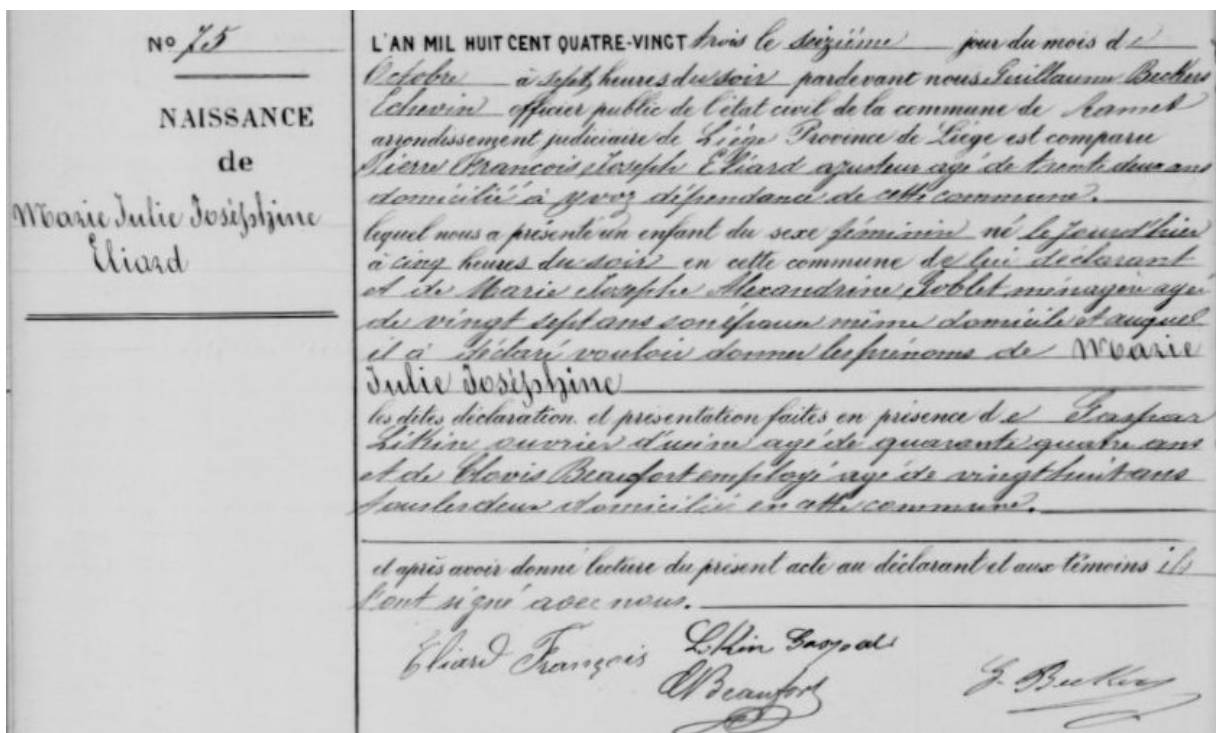 No 75
NAISSANCE
de
Marie Julie Joséphine
Eliard
L'AN MIL HUIT CENT QUATRE-VINGT trois le seizième jour du mois de
Octobre à sept heures du soir pardevant nous Guillaume Beckers
Echevin officier public de l'état civil de la commune de Ramet
arrondissement judiciaire de Liége Province de Liége est comparu
Pierre François Joseph Eliard ajusteur agé de trente deux ans
domicilié à yvoz dépendance de cette commune.
lequel nous a présenté un enfant du sexe féminin né le jourd'hier
à cinq heures du soir en cette commune de lui déclarant
et de Marie Josephe Alexandrine Goblet ménagère agé
de vingt sept ans son épouse même domicile et auquel
il à déclaré vouloir donner les prénoms de Marie
Julie Joséphine
les dites déclaration et présentation faites en présence de Gaspar
Likin ouvrier d'usine agé de quarante quatre ans
et de Clovis Beaufort employé agé de vingt huit ans
tous les deux domicilié en cette commune.
et après avoir donné lecture du présent acte au déclarant et aux témoins ils
l'ont signé avec nous.
Eliard François Likin Gaspar
CBeaufort G. Beckers